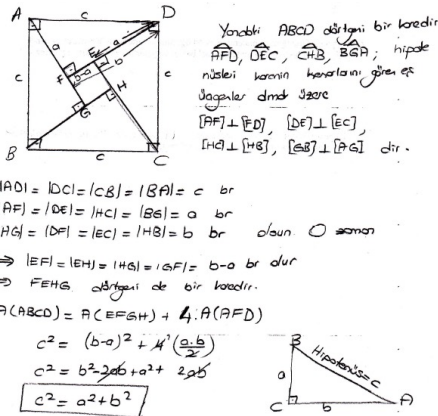 A c D
a E a
c F b-a b c
H
G
B c C
Yandaki ABCD dörtgeni bir karedir
AFD, DEC, CHB, BGA; hipote
nüsleri karenin kenarlarını gören eş
üçgenler olmak üzere
[AF]⊥[FD], [DE]⊥[EC],
[HC]⊥[HB], [GB]⊥[AG] dir.
|AD| = |DC| = |CB| = |BA| = c br
|AF| = |DE| = |HC| = |BG| = a br
|AG| = |DF| = |EC| = |HB| = b br olsun. O zaman
⇒ |EF| = |EH| = |HG| = |GF| = b-a br olur
⇒ FEHG dörtgeni de bir karedir.
A(ABCD) = A(EFGH) + 4.A(AFD)
c² = (b-a)² + 4 (a.b/2)
c² = b² - 2ab + a² + 2ab
c² = a² + b²
B
Hipotenüs = c
a
C b A